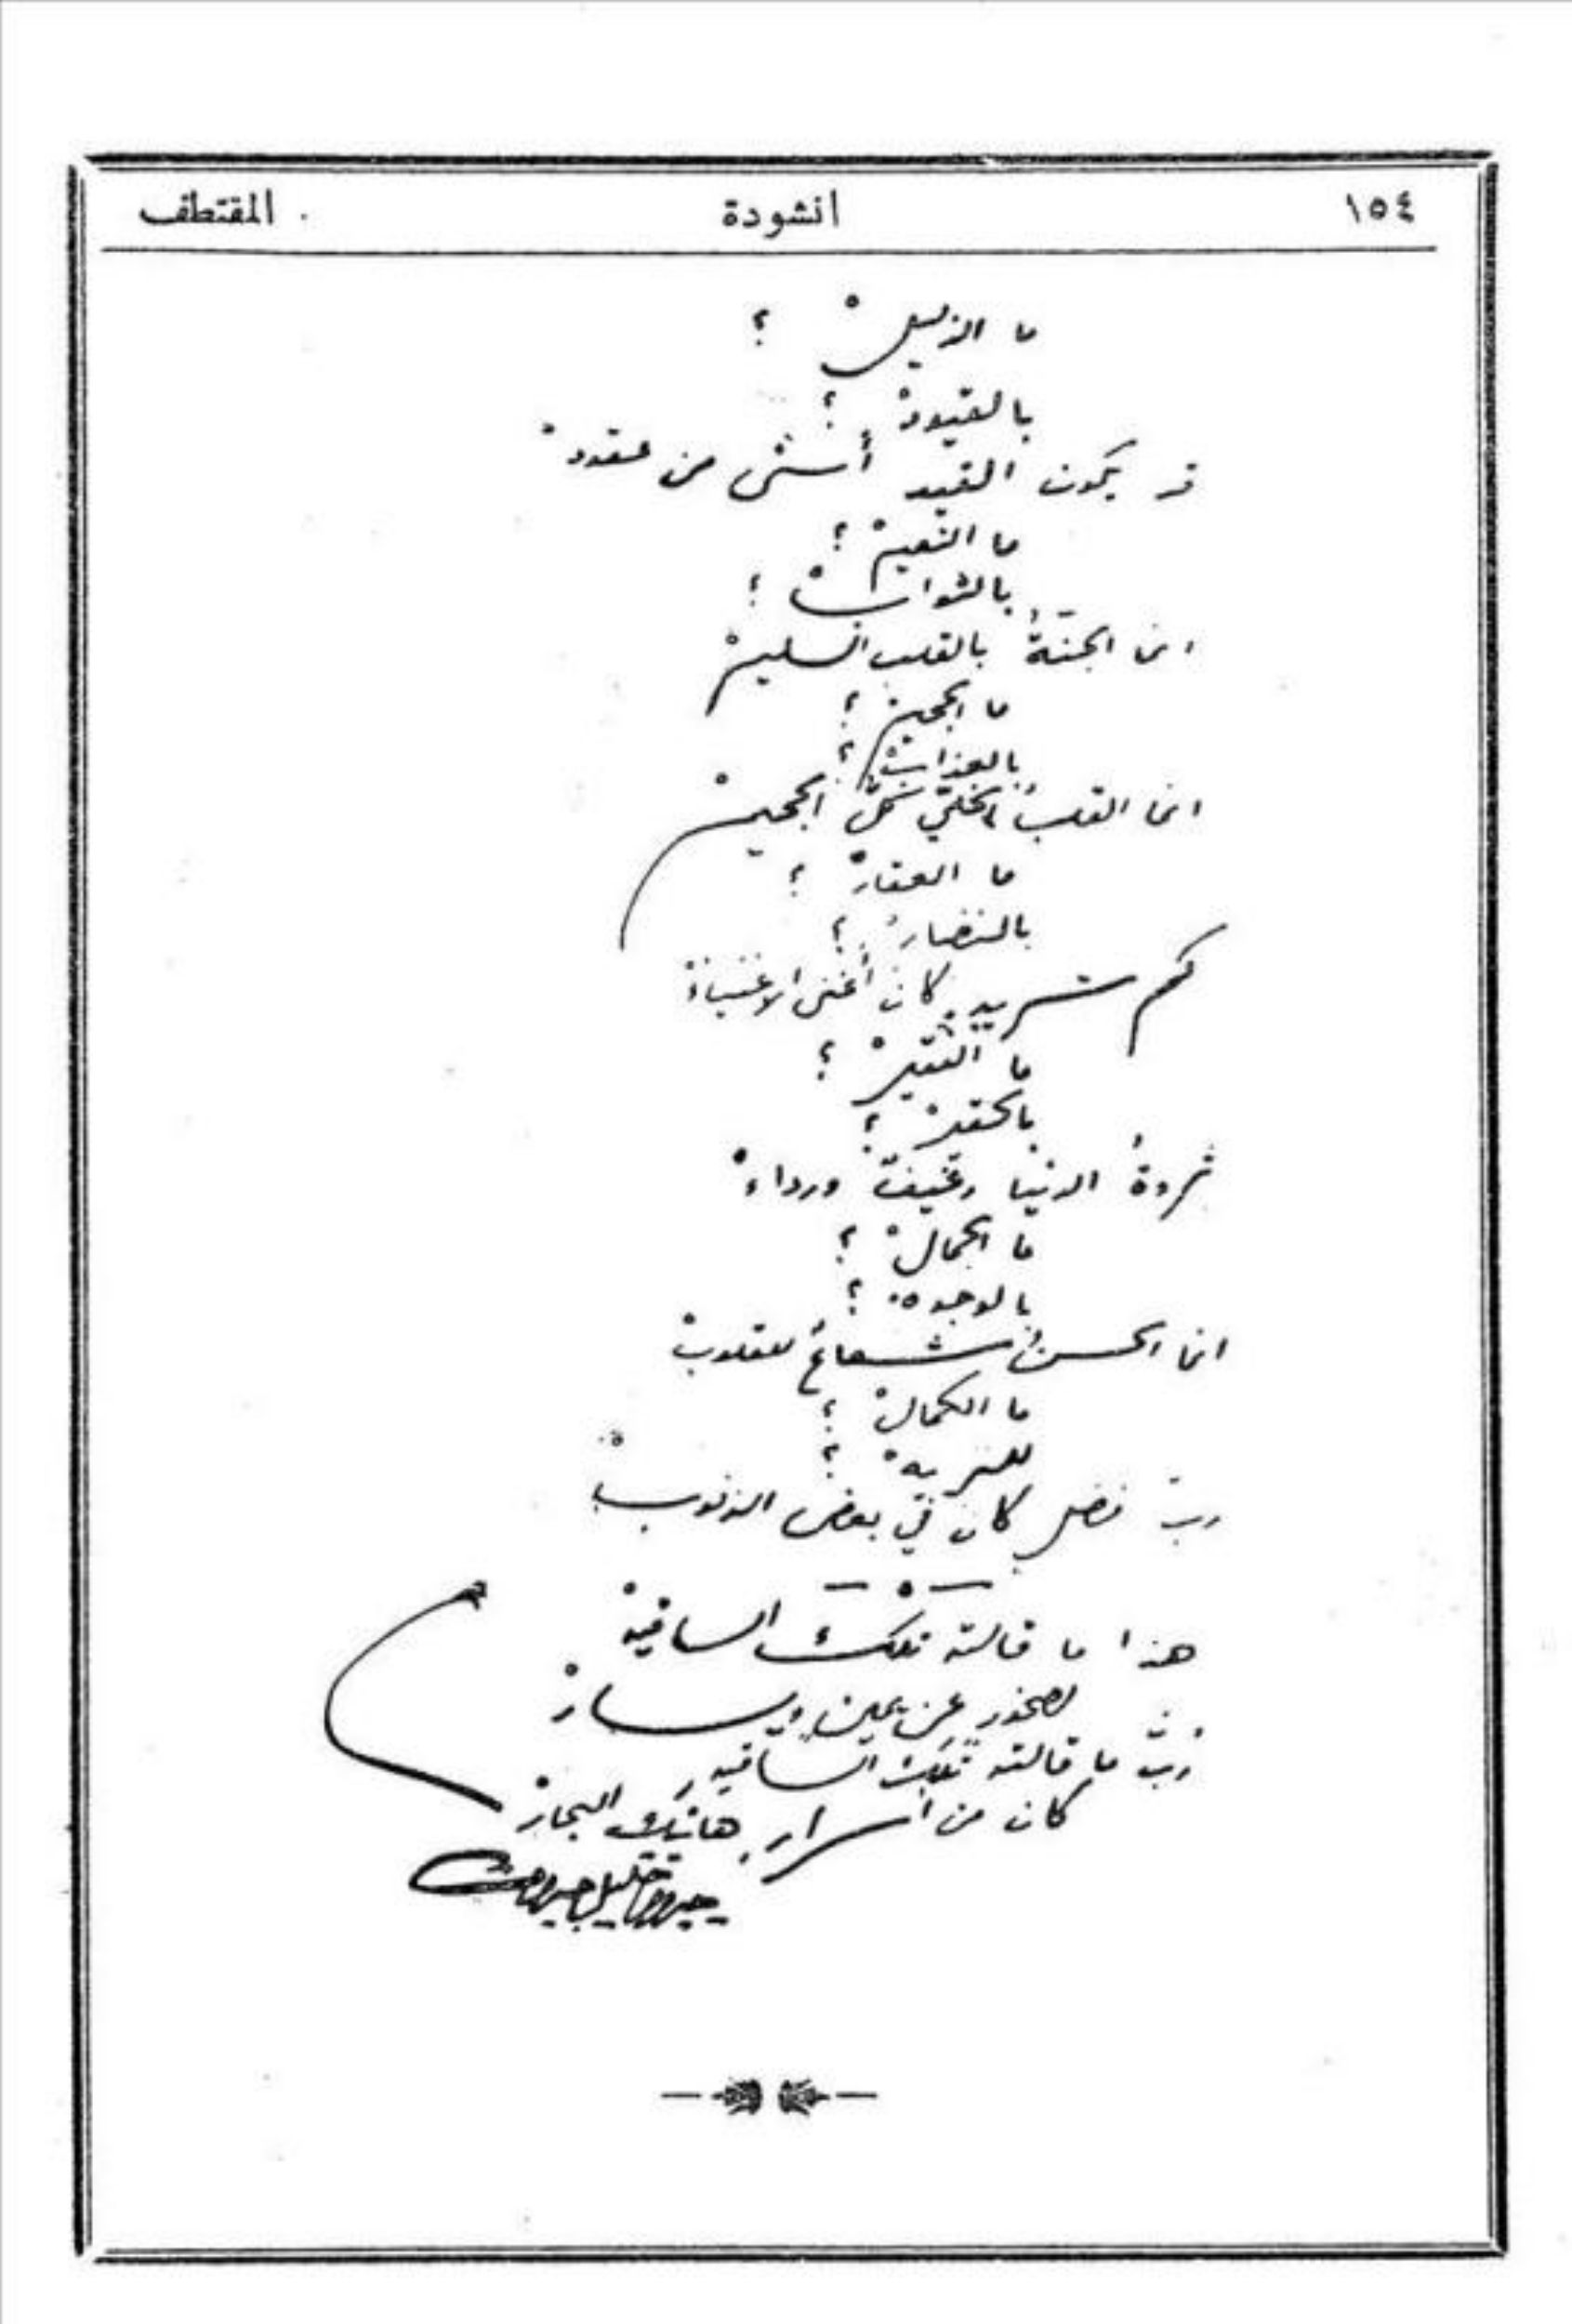 ١٥٤ انشودة المقتطف
ما الذليلْ ؟
بالقيودْ ؟
قد يكون القيد أسنى من عقودْ
ما النعيمْ ؟
بالثوابْ ؟
انما الجنةُ بالقلب السليمْ
ما الجحيمْ ؟
بالعذابْ ؟
انما القلبُ الخليّ كلّ الجحيمْ
ما العقارْ ؟
بالنضارْ ؟
كم شريدٍ كان أغنى الاغنياءْ
ما الفقيرْ ؟
بالحقيرْ ؟
ثروةُ الدنيا رغيفٌ ورداءْ
ما الجمالْ ؟
بالوجوهْ ؟
انما الحسنُ شعاعٌ للقلوبْ
ما الكمالْ ؟
للنزيهْ ؟
ربّ فضلٍ كان في بعض الذنوبْ
هذا ما قالته تلك الساقيهْ
لصخورٍ عن يمينٍ ويسارْ
رُبّ ما قالته تلك الساقيه
كان من أسرارِ هاتيك البحارْ
جبران خليل جبران